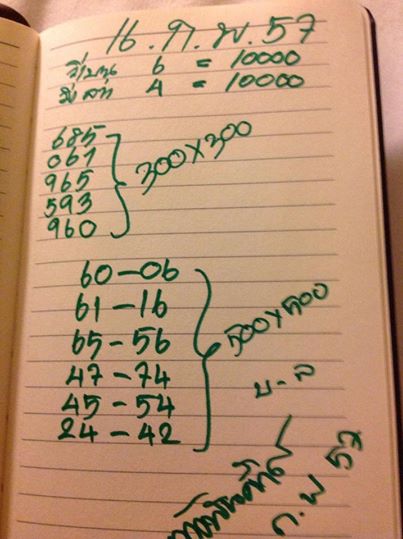 16 . ก . พ . 57
วิ่งบน 6 = 10000
วิ่งล่าง 4 = 10000
685
061
965
593
960
300x300
60-06
61-16
65-56
47-74
45-54
24-42
500x500
บ-ล
ก.พ 57